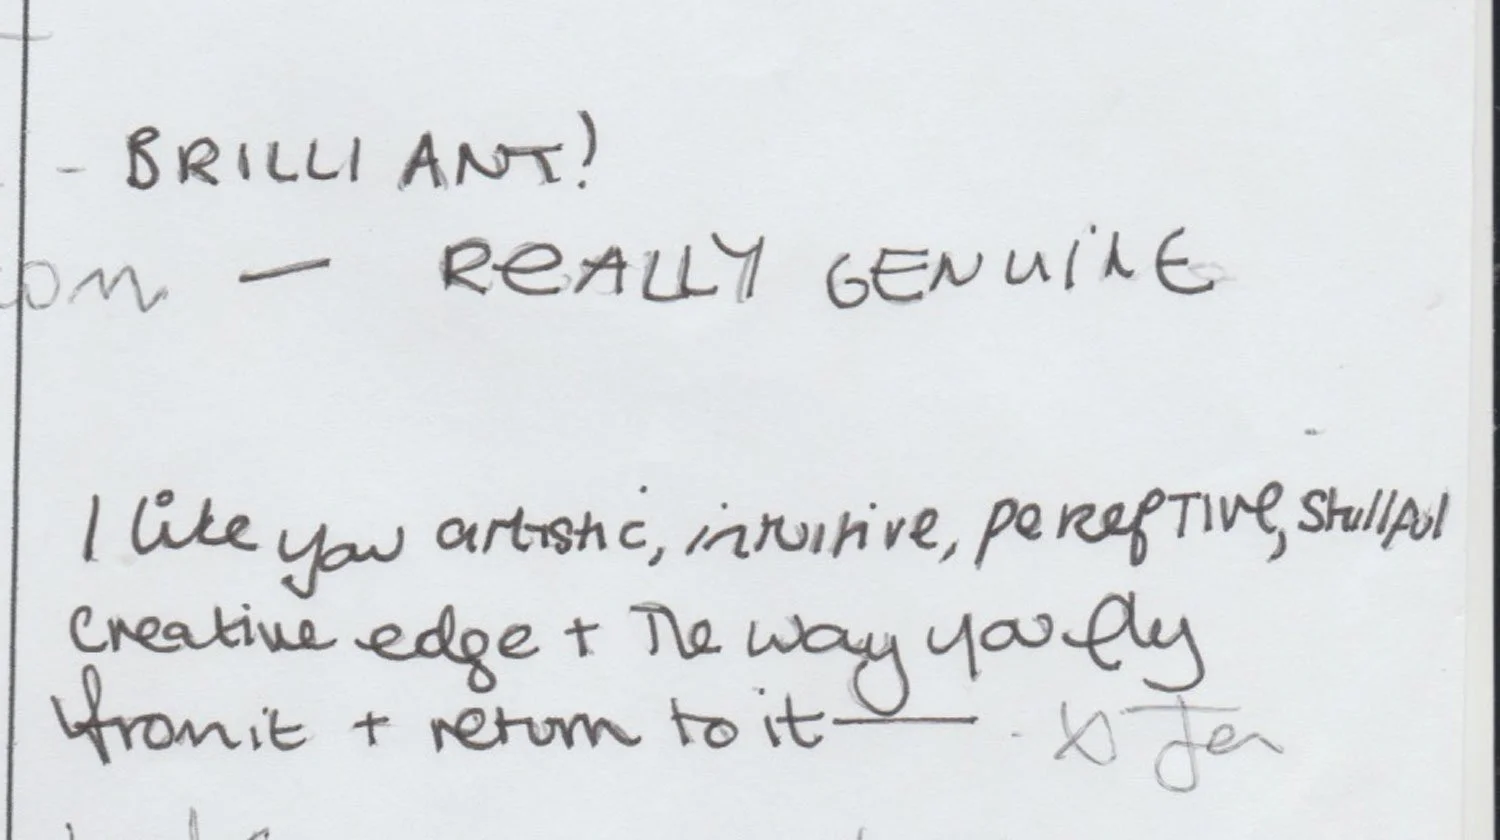 - BRILLIANT!
— REALLY GENUINE
I like you artistic, intuitive, perceptive, skillful
creative edge + The way you fly
from it + return to it — . x Jen